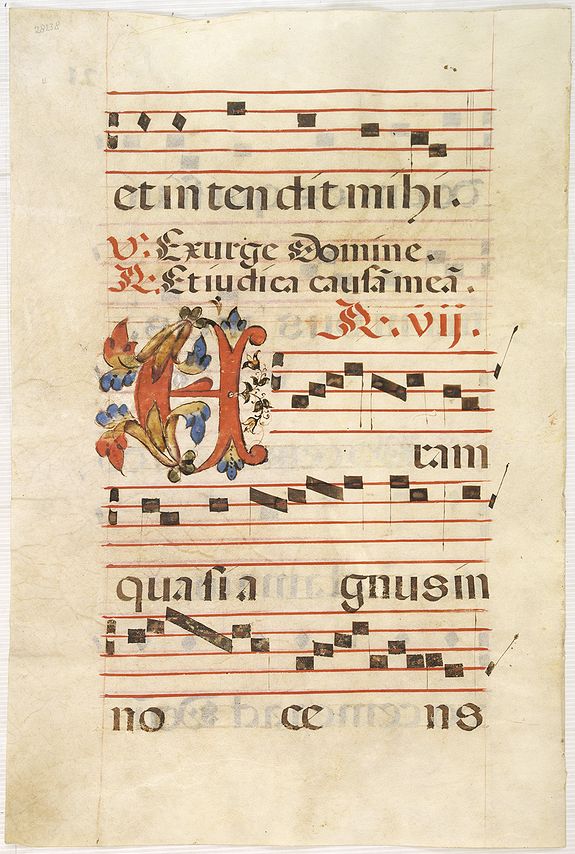 et in ten dit mihi.
V. Exurge Domine.
R. Et iudica causā meā.
R. vij.
E ram
quasi a gnus in
no ce ns